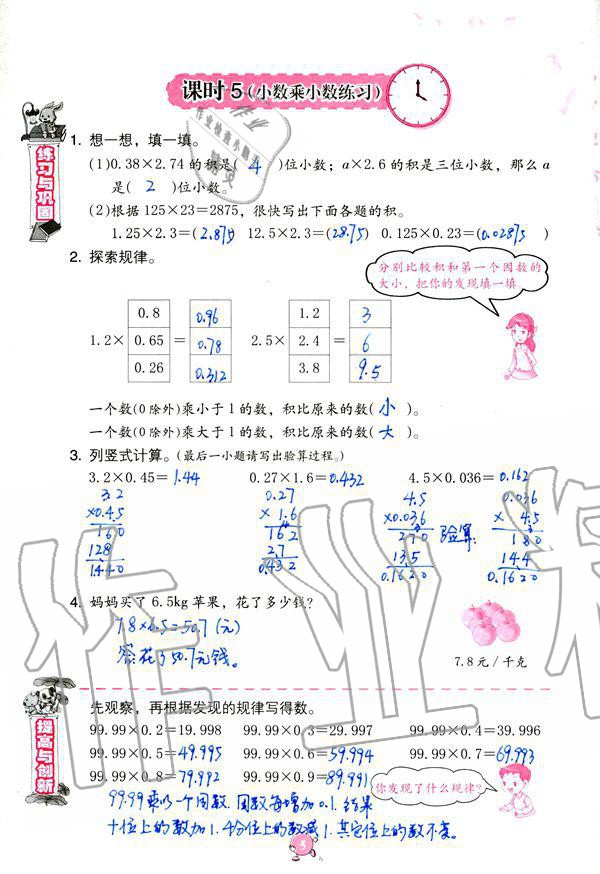 课时5(小数乘小数练习)
练习与巩固
1. 想一想，填一填。
(1)0.38×2.74的积是( 4 )位小数；a×2.6的积是三位小数，那么a
是( 2 )位小数。
(2)根据125×23=2875，很快写出下面各题的积。
1.25×2.3=(2.875) 12.5×2.3=(28.75) 0.125×0.23=(0.02875)
2. 探索规律。
分别比较积和第一个因数的
大小，把你的发现填一填
0.8 0.96 1.2 3
1.2× 0.65 = 0.78 2.5× 2.4 = 6
0.26 0.312 3.8 9.5
一个数(0除外)乘小于1的数，积比原来的数( 小 )。
一个数(0除外)乘大于1的数，积比原来的数( 大 )。
3. 列竖式计算。(最后一小题请写出验算过程。)
3.2×0.45=1.44 0.27×1.6=0.432 4.5×0.036=0.162
3.2 0.27 4.5 0.036
×0.45 ×1.6 ×0.036 验算: ×4.5
160 162 270 180
128 27 135 144
1.440 0.432 0.1620 0.1620
4. 妈妈买了6.5kg苹果，花了多少钱?
7.8×6.5=50.7(元)
答:花了50.7元钱。
7.8元/千克
提高与创新
先观察，再根据发现的规律写得数。
99.99×0.2=19.998 99.99×0.3=29.997 99.99×0.4=39.996
99.99×0.5=49.995 99.99×0.6=59.994 99.99×0.7=69.993
99.99×0.8=79.992 99.99×0.9=89.991
你发现了什么规律?
99.99乘以一个因数，因数每增加0.1.结果
十位上的数加1.千分位上的数减1.其它位上的数不变。
5
作业